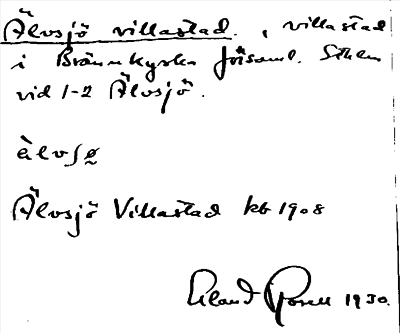 Älvsjö villastad. , villastad
i Brännkyrka församl. Sthlm
vid 1-2 Älvsjö.
Älvsjö Villastad kb 1908
Erland 1930.